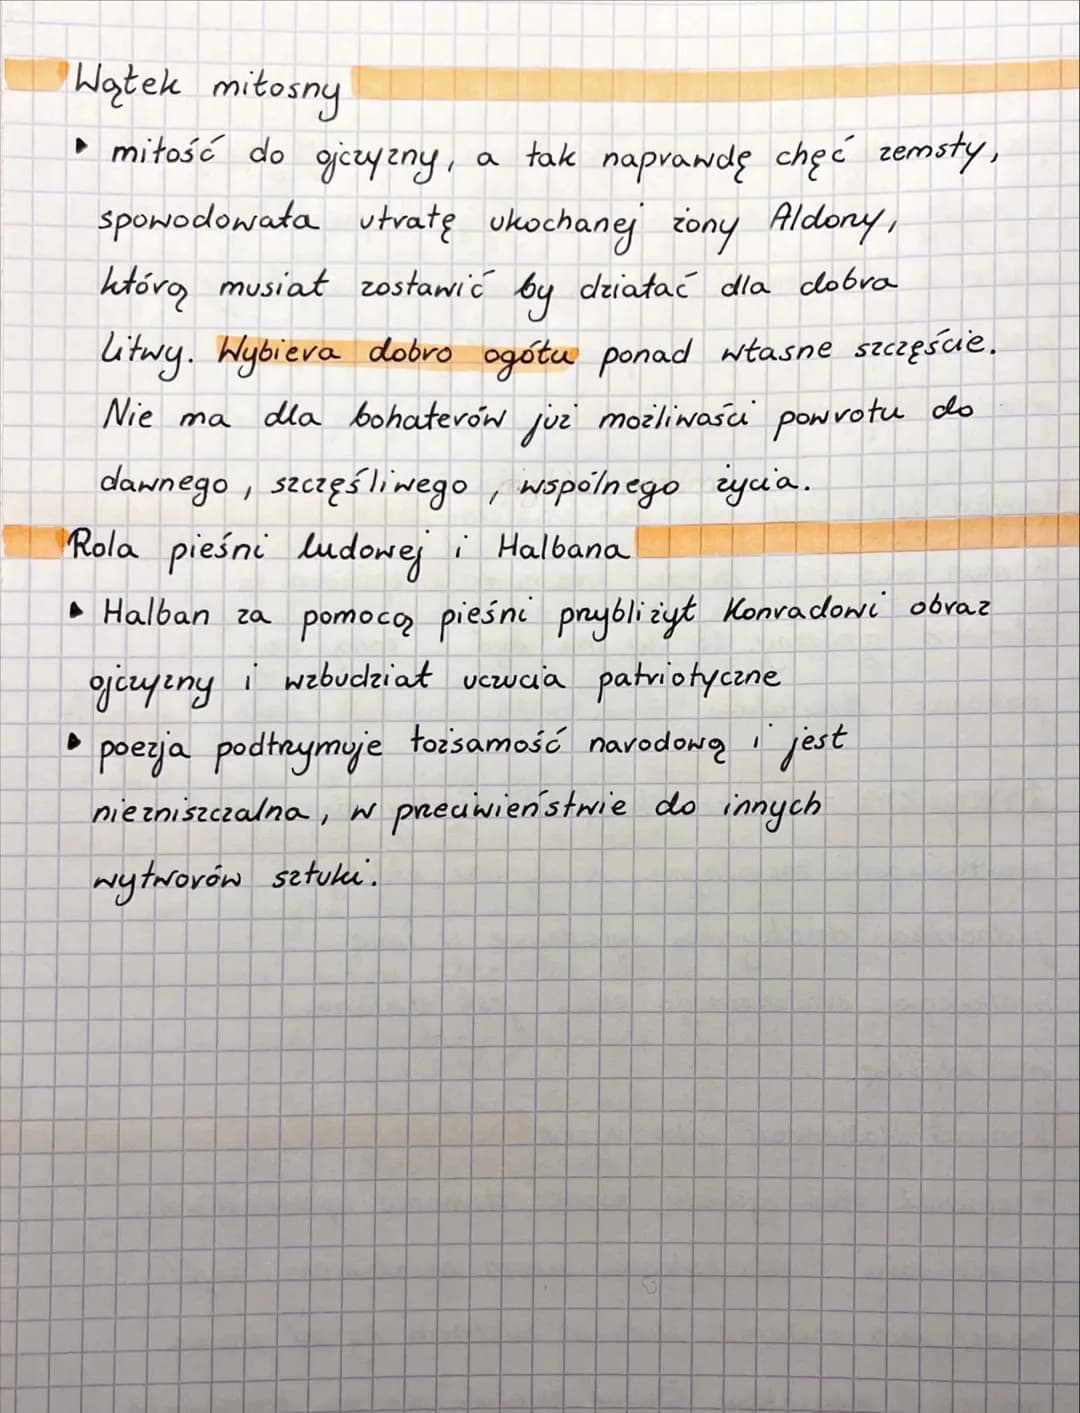 Wątek miłosny
▸ miłość do ojczyzny, a tak naprawdę chęć zemsty,
spowodowała utratę ukochanej żony Aldony,
którą musiał zostawić by działać dla dobra
Litwy. Wybiera dobro ogółu ponad własne szczęście.
Nie ma dla bohaterów już możliwości powrotu do
dawnego, szczęśliwego, wspólnego życia.
Rola pieśni ludowej i Halbana
▸ Halban za pomocą pieśni przybliżył Konradowi obraz
ojczyzny i wzbudział uczucia patriotyczne
▸ poezja podtrzymuje tożsamość narodową i jest
niezniszczalna, w przeciwieństwie do innych
wytworów sztuki.